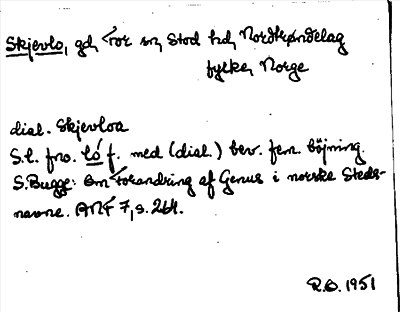 Skjevlo, gd, For sn, Stod hd, Nordtrøndelag
fylke, Norge
dial. Skjevloa
S.l. fno. ló f. med (dial.) bev. fem. böjning.
S. Bugge: Om Forandring af Genus i norske Steds-
navne. ANF 7, s. 264.
R.O. 1951